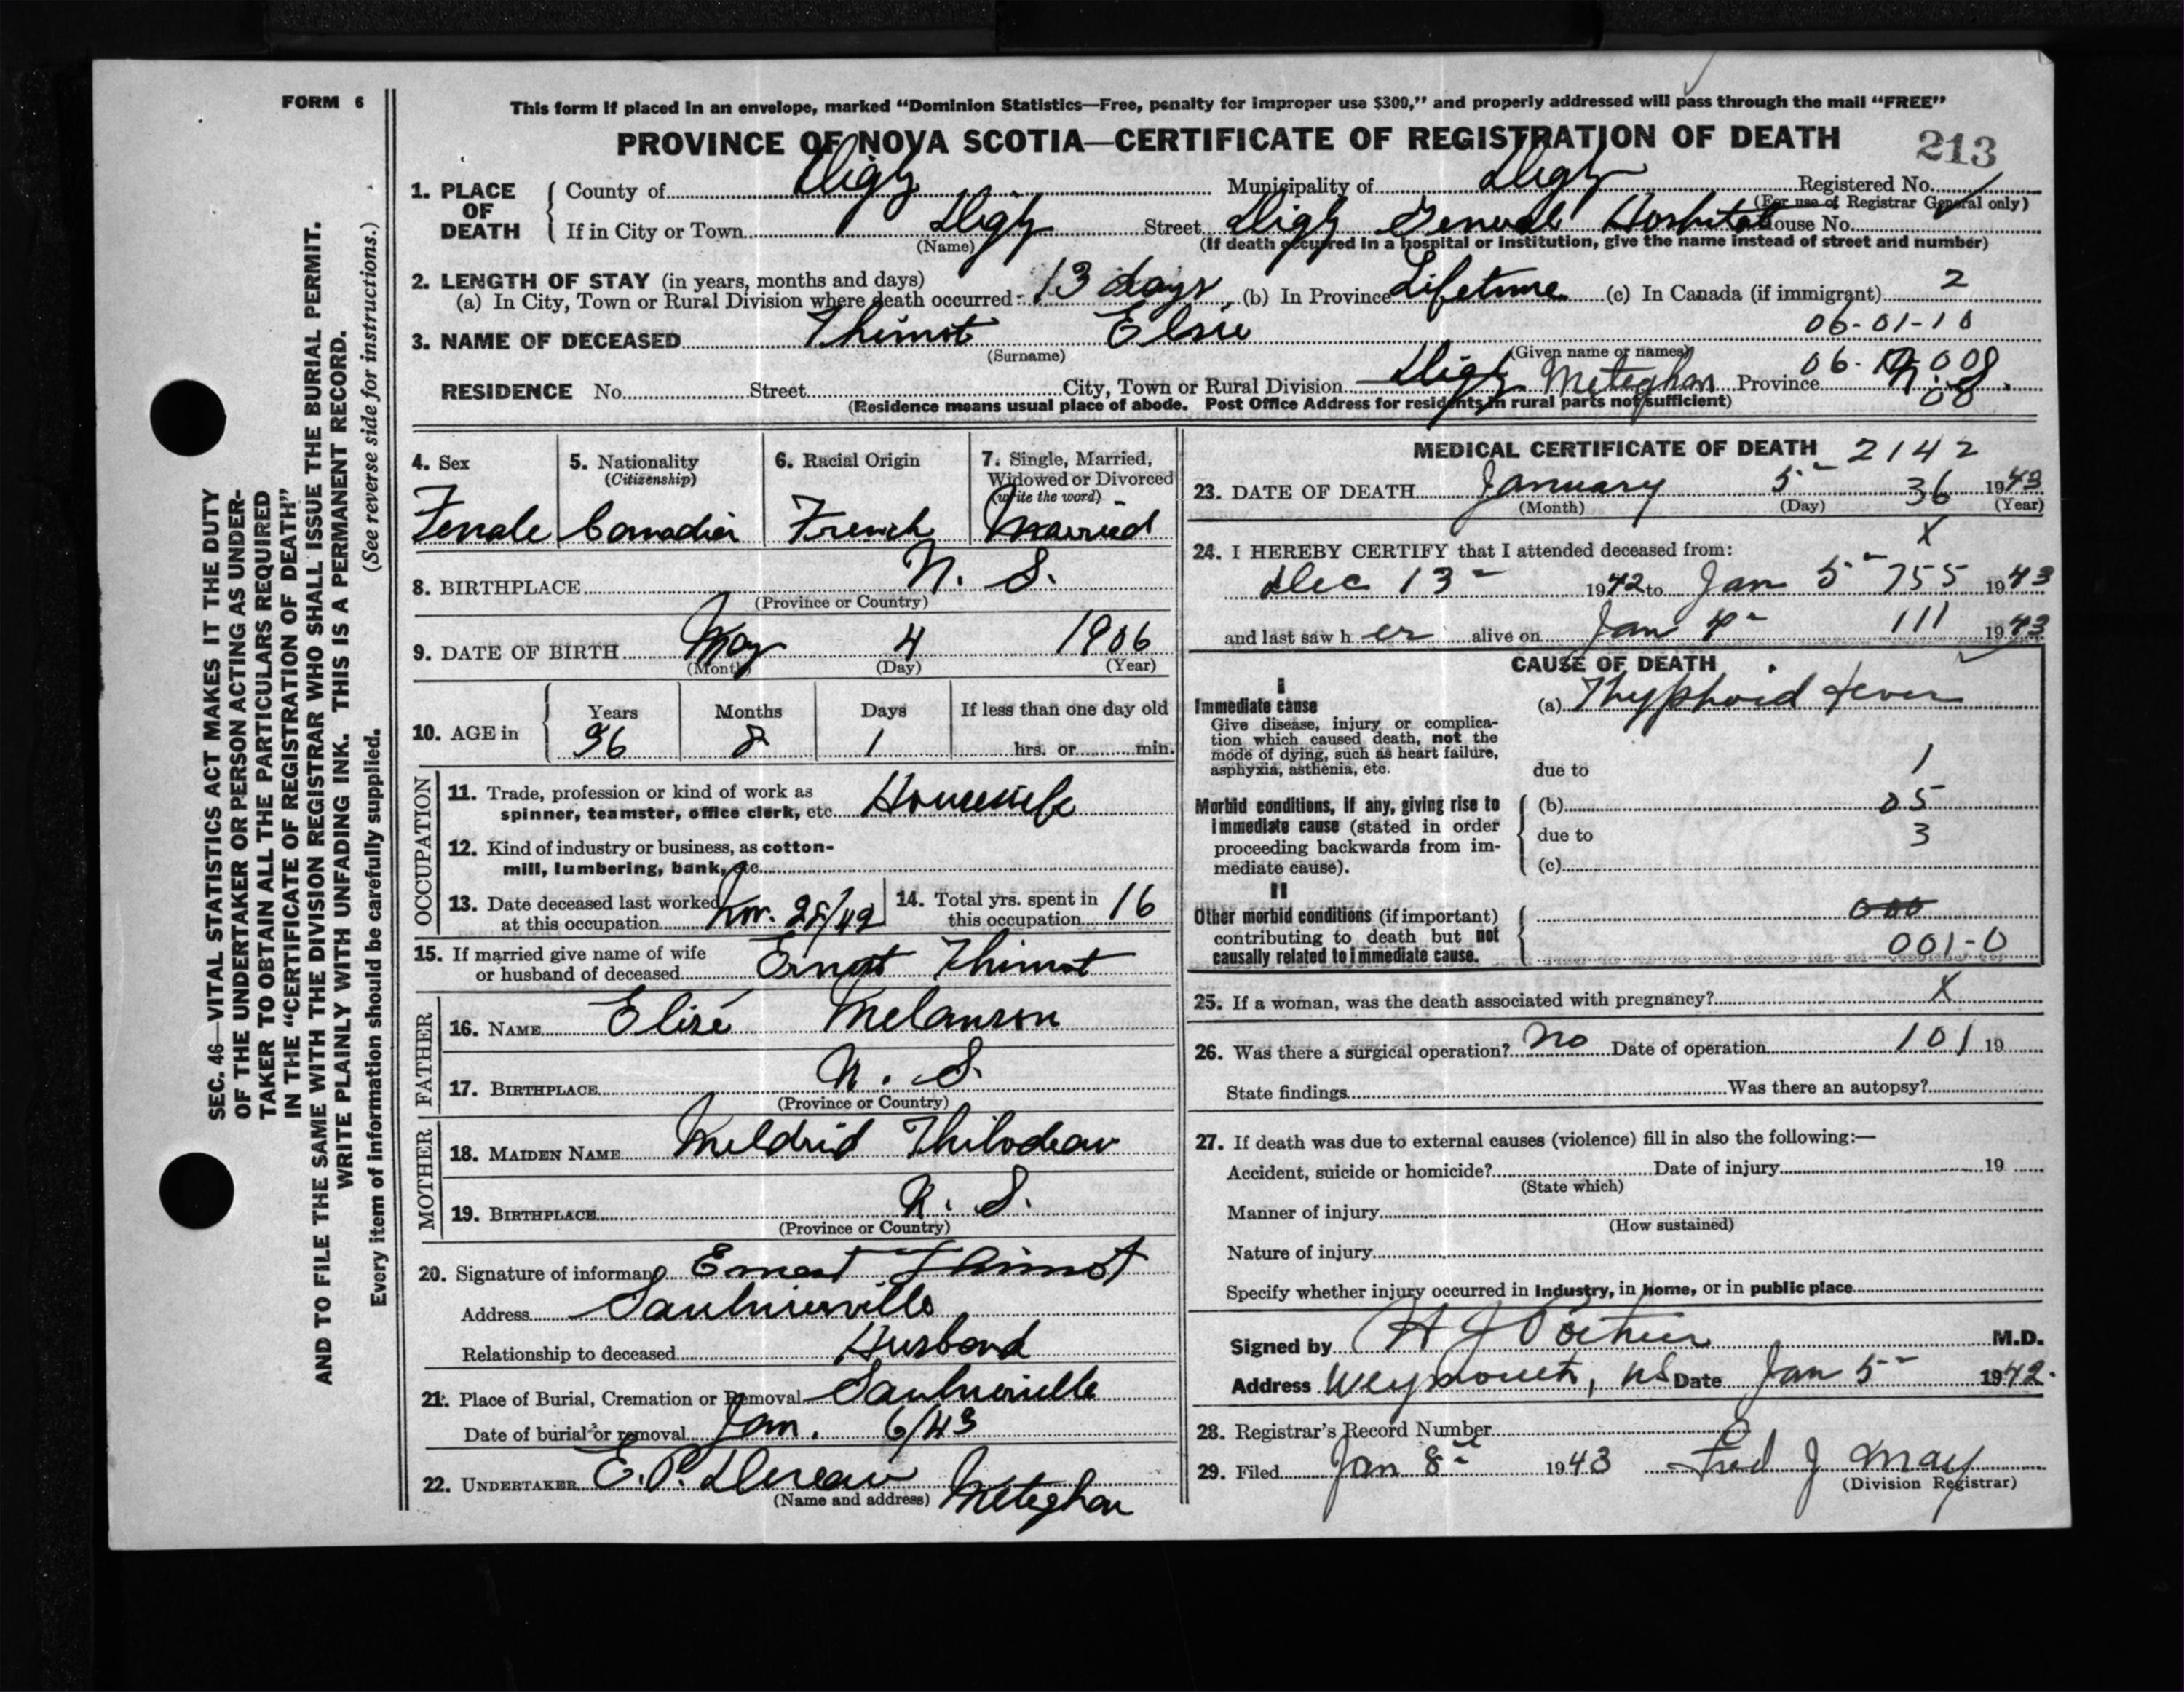 FORM 6
This form if placed in an envelope, marked "Dominion Statistics—Free, penalty for improper use $300," and properly addressed will pass through the mail "FREE"
PROVINCE OF NOVA SCOTIA—CERTIFICATE OF REGISTRATION OF DEATH
213
1. PLACE OF DEATH
County of Digby Municipality of Digby Registered No.
(For use of Registrar General only)
If in City or Town Digby Street Digby General Hospital House No.
(Name) (If death occurred in a hospital or institution, give the name instead of street and number)
2. LENGTH OF STAY (in years, months and days)
(a) In City, Town or Rural Division where death occurred 13 days (b) In Province Lifetime (c) In Canada (if immigrant) 2
06-01-10
3. NAME OF DECEASED Thimot Elsie
(Surname) (Given name or names)
06-19-008
RESIDENCE No. Street City, Town or Rural Division Digby Meteghan Province N.S.
00
(Residence means usual place of abode. Post Office Address for residents in rural parts not sufficient)
4. Sex
Female
5. Nationality
(Citizenship)
Canadian
6. Racial Origin
French
7. Single, Married, Widowed or Divorced
(write the word)
Married
8. BIRTHPLACE N. S.
(Province or Country)
9. DATE OF BIRTH May 4 1906
(Month) (Day) (Year)
10. AGE in
Years Months Days If less than one day old
36 8 1 hrs. or min.
OCCUPATION
11. Trade, profession or kind of work as
spinner, teamster, office clerk, etc. Housewife
12. Kind of industry or business, as cotton-
mill, lumbering, bank, etc.
13. Date deceased last worked
at this occupation Nov. 28/42
14. Total yrs. spent in
this occupation 16
15. If married give name of wife
or husband of deceased Ernest Thimot
FATHER
16. NAME Elisé Melanson
17. BIRTHPLACE N. S.
(Province or Country)
MOTHER
18. MAIDEN NAME Meldrid Thibodeau
19. BIRTHPLACE N. S.
(Province or Country)
20. Signature of informant Ernest Thimot
Address Saulnierville
Relationship to deceased Husband
21. Place of Burial, Cremation or Removal Saulnierville
Date of burial or removal Jan. 6/43
22. UNDERTAKER E.P. Meteghan
(Name and address)
MEDICAL CERTIFICATE OF DEATH 2142
23. DATE OF DEATH January 5 36 1943
(Month) (Day) (Year)
X
24. I HEREBY CERTIFY that I attended deceased from:
Dec 13 1942 to Jan 5 755 1943
and last saw her alive on Jan 4 111 1943
CAUSE OF DEATH
I
Immediate cause
Give disease, injury or complica-
tion which caused death, not the
mode of dying, such as heart failure,
asphyxia, asthenia, etc.
(a) Thyphoid fever
due to 1
Morbid conditions, if any, giving rise to
immediate cause (stated in order
proceeding backwards from im-
mediate cause).
(b) 05
due to 3
(c)
II
Other morbid conditions (if important)
contributing to death but not
causally related to immediate cause.
000
001-0
25. If a woman, was the death associated with pregnancy? X
26. Was there a surgical operation? no Date of operation 101 19
State findings Was there an autopsy?
27. If death was due to external causes (violence) fill in also the following:—
Accident, suicide or homicide? Date of injury 19
(State which)
Manner of injury
(How sustained)
Nature of injury
Specify whether injury occurred in Industry, in home, or in public place
Signed by H J Pothier M.D.
Address Weymouth, NS Date Jan 5 1942.
28. Registrar's Record Number
29. Filed Jan 8 1943 Fred J May
(Division Registrar)
SEC. 46—VITAL STATISTICS ACT MAKES IT THE DUTY
OF THE UNDERTAKER OR PERSON ACTING AS UNDER-
TAKER TO OBTAIN ALL THE PARTICULARS REQUIRED
IN THE "CERTIFICATE OF REGISTRATION OF DEATH"
AND TO FILE THE SAME WITH THE DIVISION REGISTRAR WHO SHALL ISSUE THE BURIAL PERMIT.
WRITE PLAINLY WITH UNFADING INK. THIS IS A PERMANENT RECORD.
Every item of information should be carefully supplied. (See reverse side for instructions.)